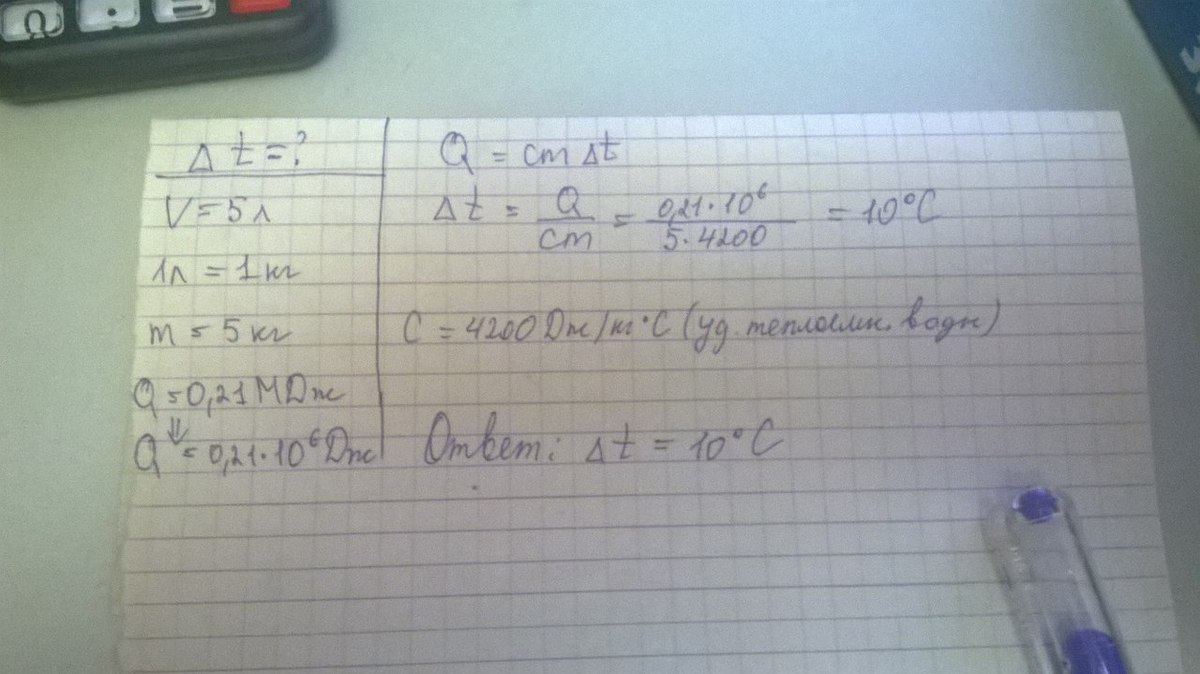 Δt=?
V=5л
1л=1кг
m=5кг
Q=0,21МДж
⇓
Q=0,21·10⁶Дж
Q=cmΔt
Δt = Q/cm = 0,21·10⁶/5·4200 = 10°C
C=4200Дж/кг°C (уд. теплоемк. воды)
Ответ: Δt=10°C